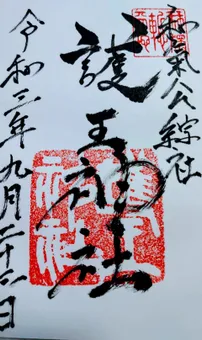 和氣公綜社
護王神社
令和三年九月二十六日